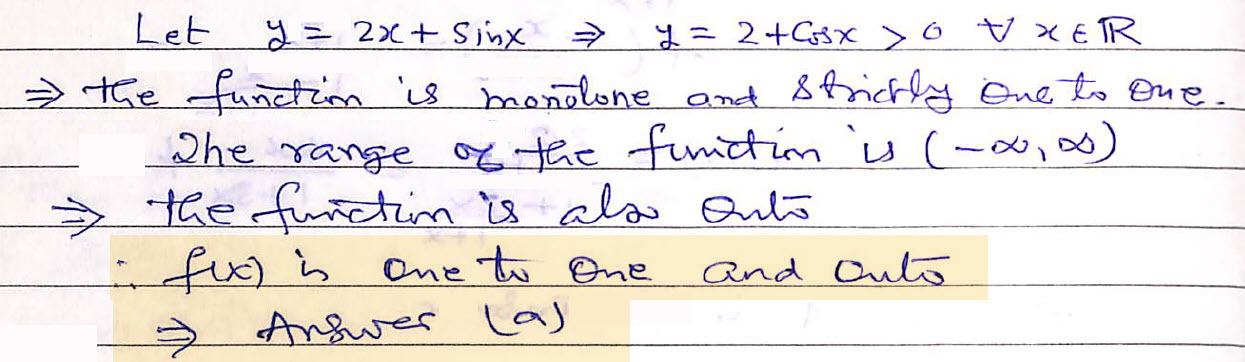 Let y = 2x + Sinx ⇒ y = 2+Cosx > 0 ∀ x ∈ ℝ
⇒ the function is monotone and strictly one to one.
The range of the function is (-∞, ∞)
⇒ the function is also onto
∴ f(x) is one to one and onto
⇒ Answer (a)